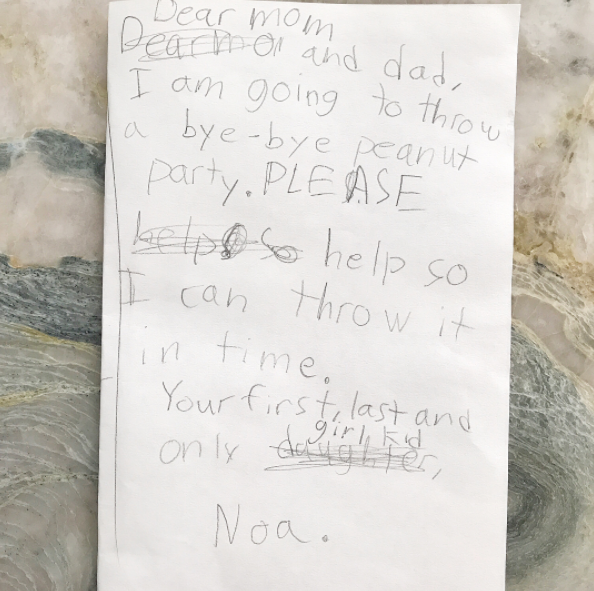 Dear mom
Dear mo and dad,
I am going to throw
a bye-bye peanut
party. PLEASE
help so help so
I can throw it
in time.
Your first, last and
girl kid
only daughter,
Noa.